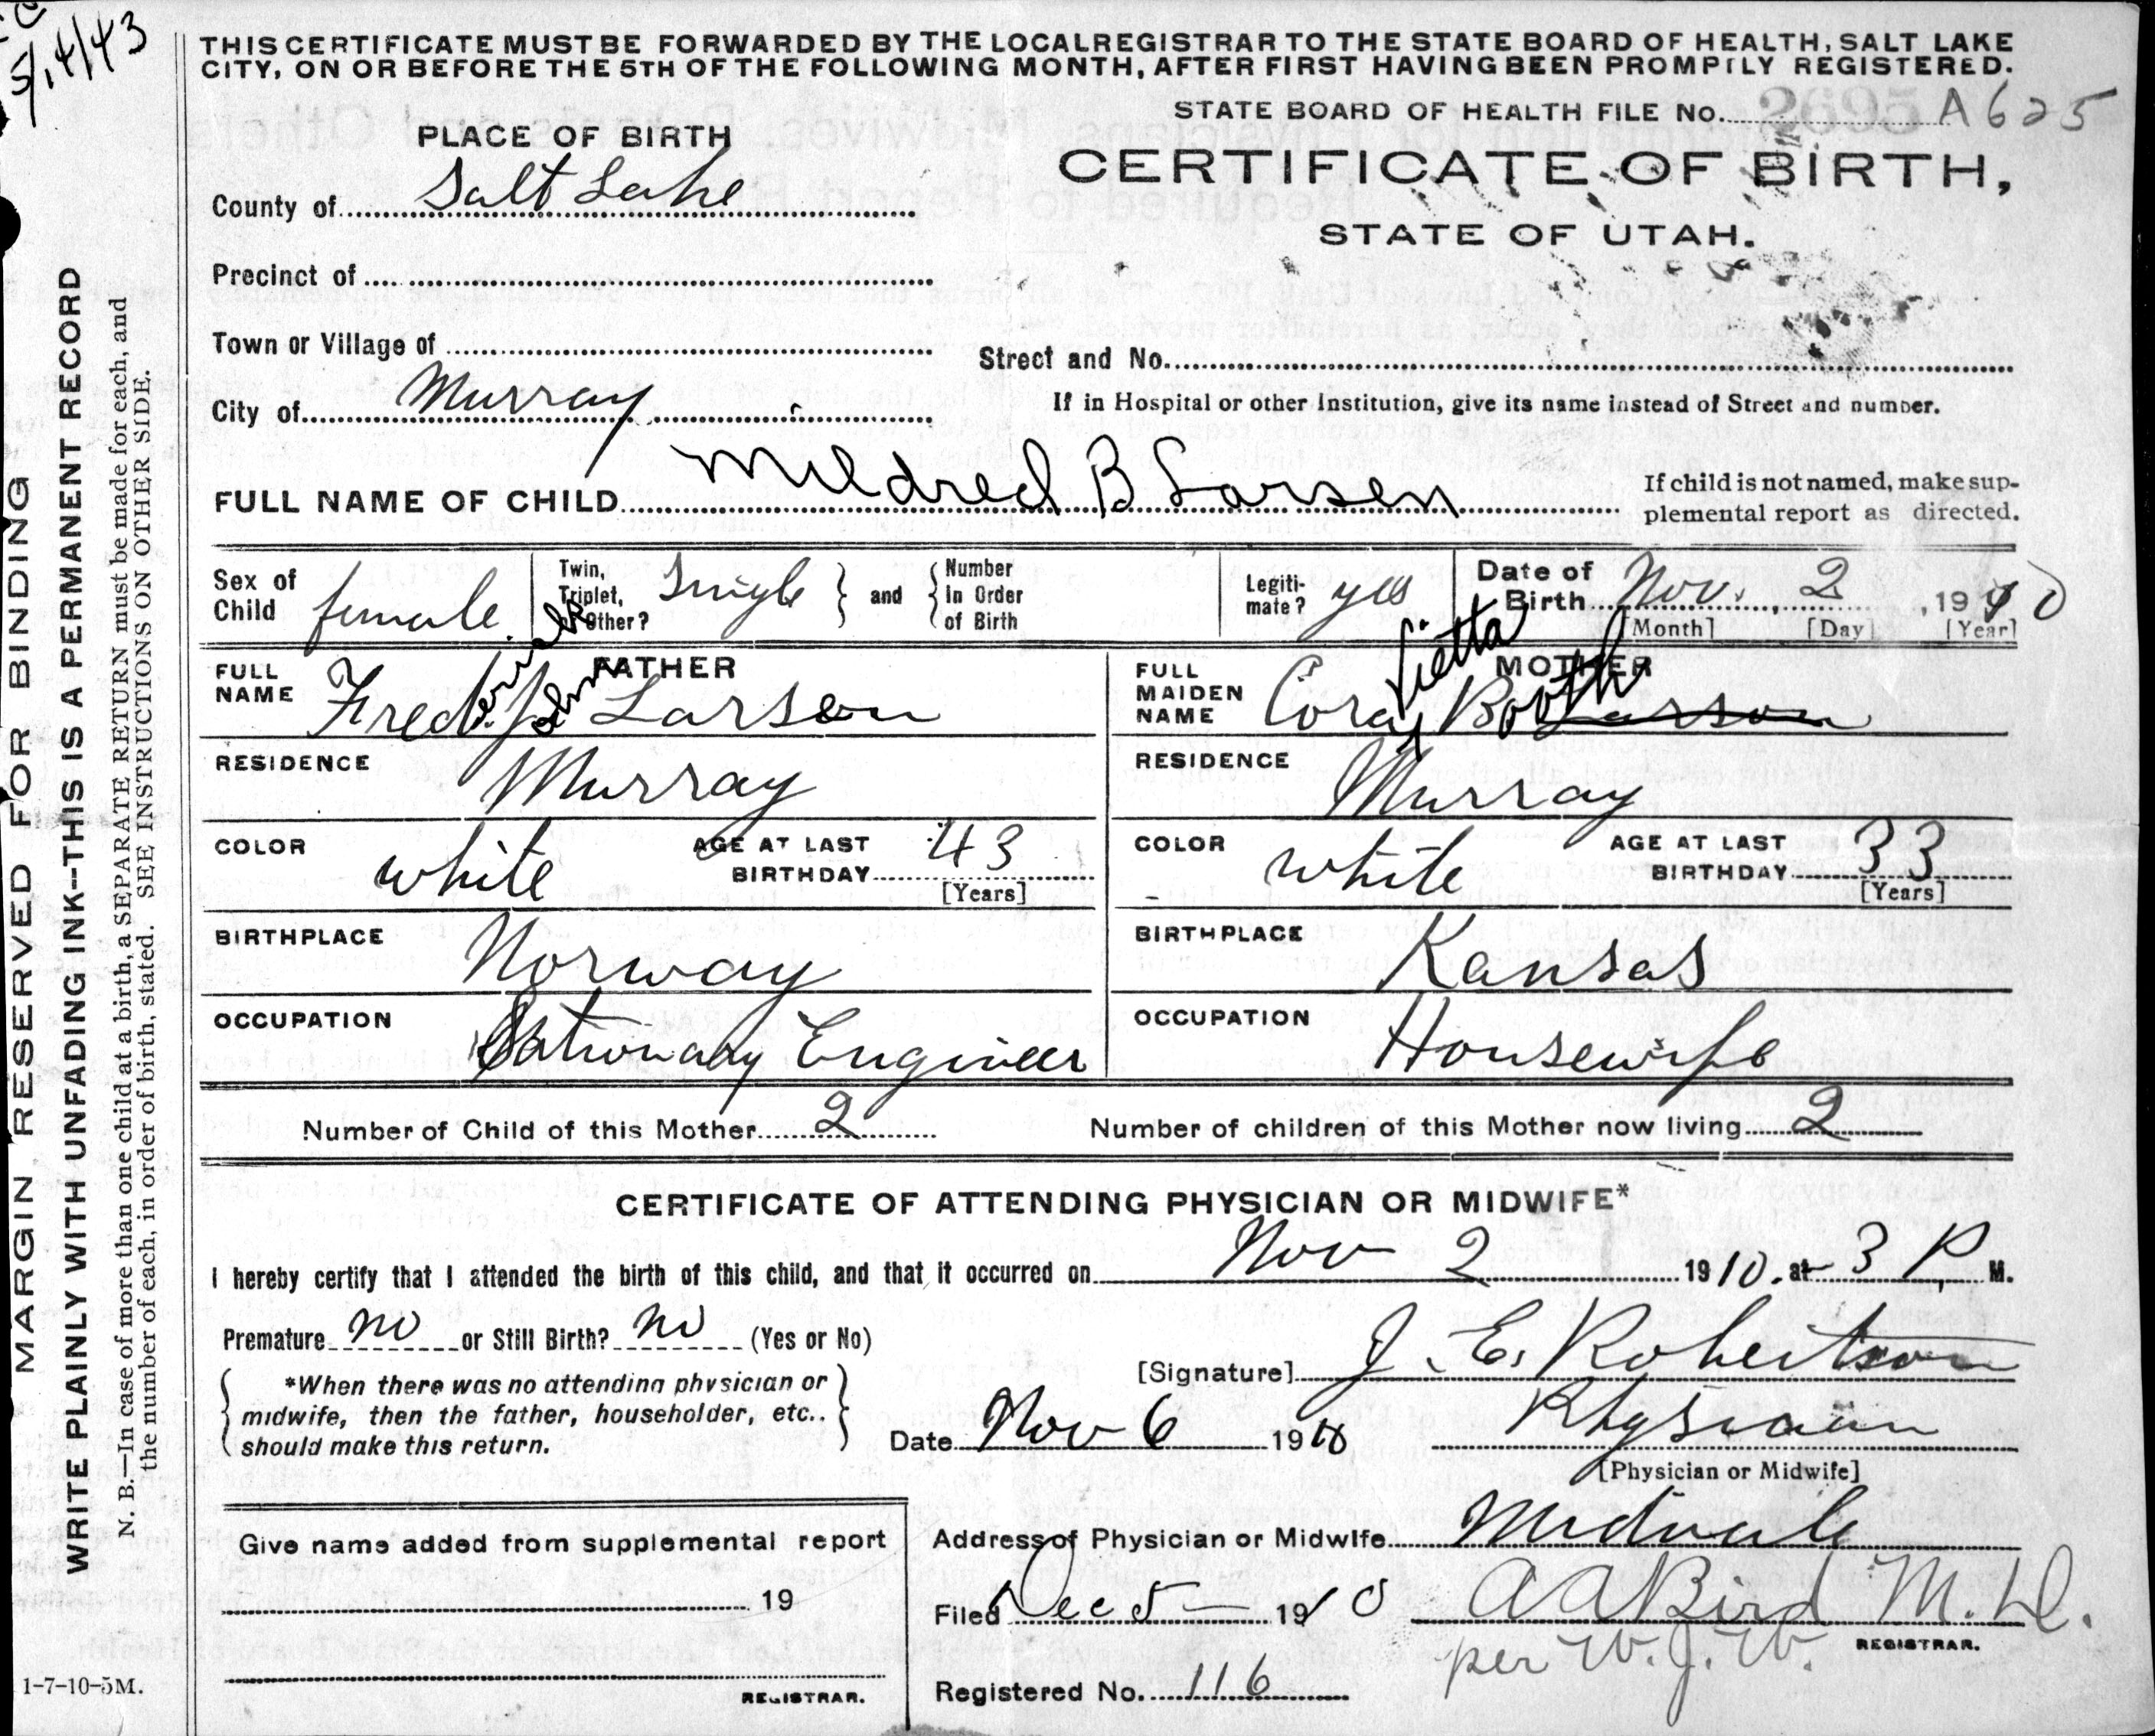 5/14/43
THIS CERTIFICATE MUST BE FORWARDED BY THE LOCAL REGISTRAR TO THE STATE BOARD OF HEALTH, SALT LAKE
CITY, ON OR BEFORE THE 5TH OF THE FOLLOWING MONTH, AFTER FIRST HAVING BEEN PROMPTLY REGISTERED.
STATE BOARD OF HEALTH FILE No. 2695 A625
PLACE OF BIRTH
CERTIFICATE OF BIRTH,
STATE OF UTAH.
County of Salt Lake
Precinct of
Town or Village of
Street and No.
City of Murray
If in Hospital or other Institution, give its name instead of Street and number.
FULL NAME OF CHILD Mildred B Larsen
If child is not named, make sup-
plemental report as directed.
Sex of Child female
Twin, Triplet, or Other? Single and Number In Order of Birth
Legiti-mate? yes
Date of Birth Nov. 2, 1910
[Month] [Day] [Year]
FATHER
FULL NAME Frederick John Larsen
MOTHER
FULL MAIDEN NAME Cora Lietta Booth Larson
RESIDENCE Murray
RESIDENCE Murray
COLOR white AGE AT LAST BIRTHDAY 43 [Years]
COLOR white AGE AT LAST BIRTHDAY 33 [Years]
BIRTHPLACE Norway
BIRTHPLACE Kansas
OCCUPATION Stationary Engineer
OCCUPATION Housewife
Number of Child of this Mother 2
Number of children of this Mother now living 2
CERTIFICATE OF ATTENDING PHYSICIAN OR MIDWIFE*
I hereby certify that I attended the birth of this child, and that it occurred on Nov 2 1910. at 3 P. M.
Premature no or Still Birth? no (Yes or No)
[Signature] J. E. Robertson
*When there was no attending physician or
midwife, then the father, householder, etc..
should make this return.
Date Nov 6 1910
Physician
[Physician or Midwife]
Give name added from supplemental report
19
REGISTRAR.
Address of Physician or Midwife Midvale
Filed Dec 5 - 1910 A A Bird M.D.
REGISTRAR.
per W. J. W.
Registered No. 116
1-7-10-5M.
MARGIN RESERVED FOR BINDING
WRITE PLAINLY WITH UNFADING INK--THIS IS A PERMANENT RECORD
N. B.—In case of more than one child at a birth, a SEPARATE RETURN must be made for each, and
the number of each, in order of birth, stated. SEE INSTRUCTIONS ON OTHER SIDE.